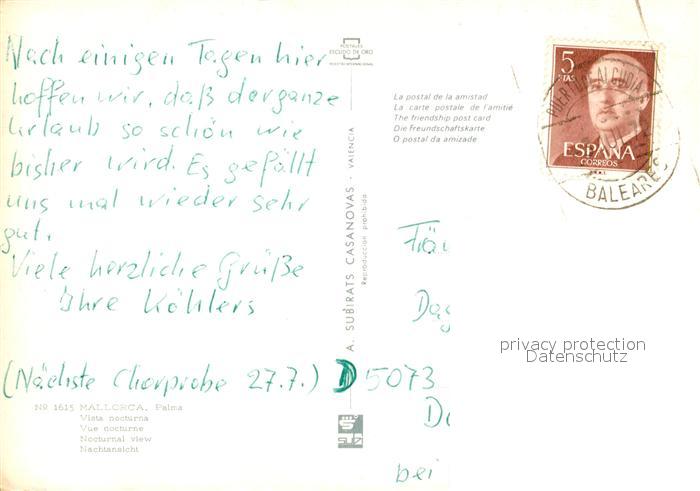 Nach einigen Tagen hier
hoffen wir, daß der ganze
Urlaub so schön wie
bisher wird. Es gefällt
uns mal wieder sehr
gut.
Viele herzliche Grüße
Ihre Köhlers
(Nächste Chorprobe 27.7.)
Nº 1615 MALLORCA. Palma
Vista nocturna
Vue nocturne
Nocturnal view
Nachtansicht
POSTALES
ESCUDO DE ORO
A. SUBIRATS CASANOVAS - VALENCIA
Reproduccion prohibida
La postal de la amistad
La carte postale de l'amitié
The friendship post card
Die Freundschaftskarte
O postal da amizade
5
PTAS
ESPAÑA
CORREOS
PUERTO DE ALCUDIA
BALEARES
Fräu
Dag
D 5073
Do
bei
privacy protection
Datenschutz